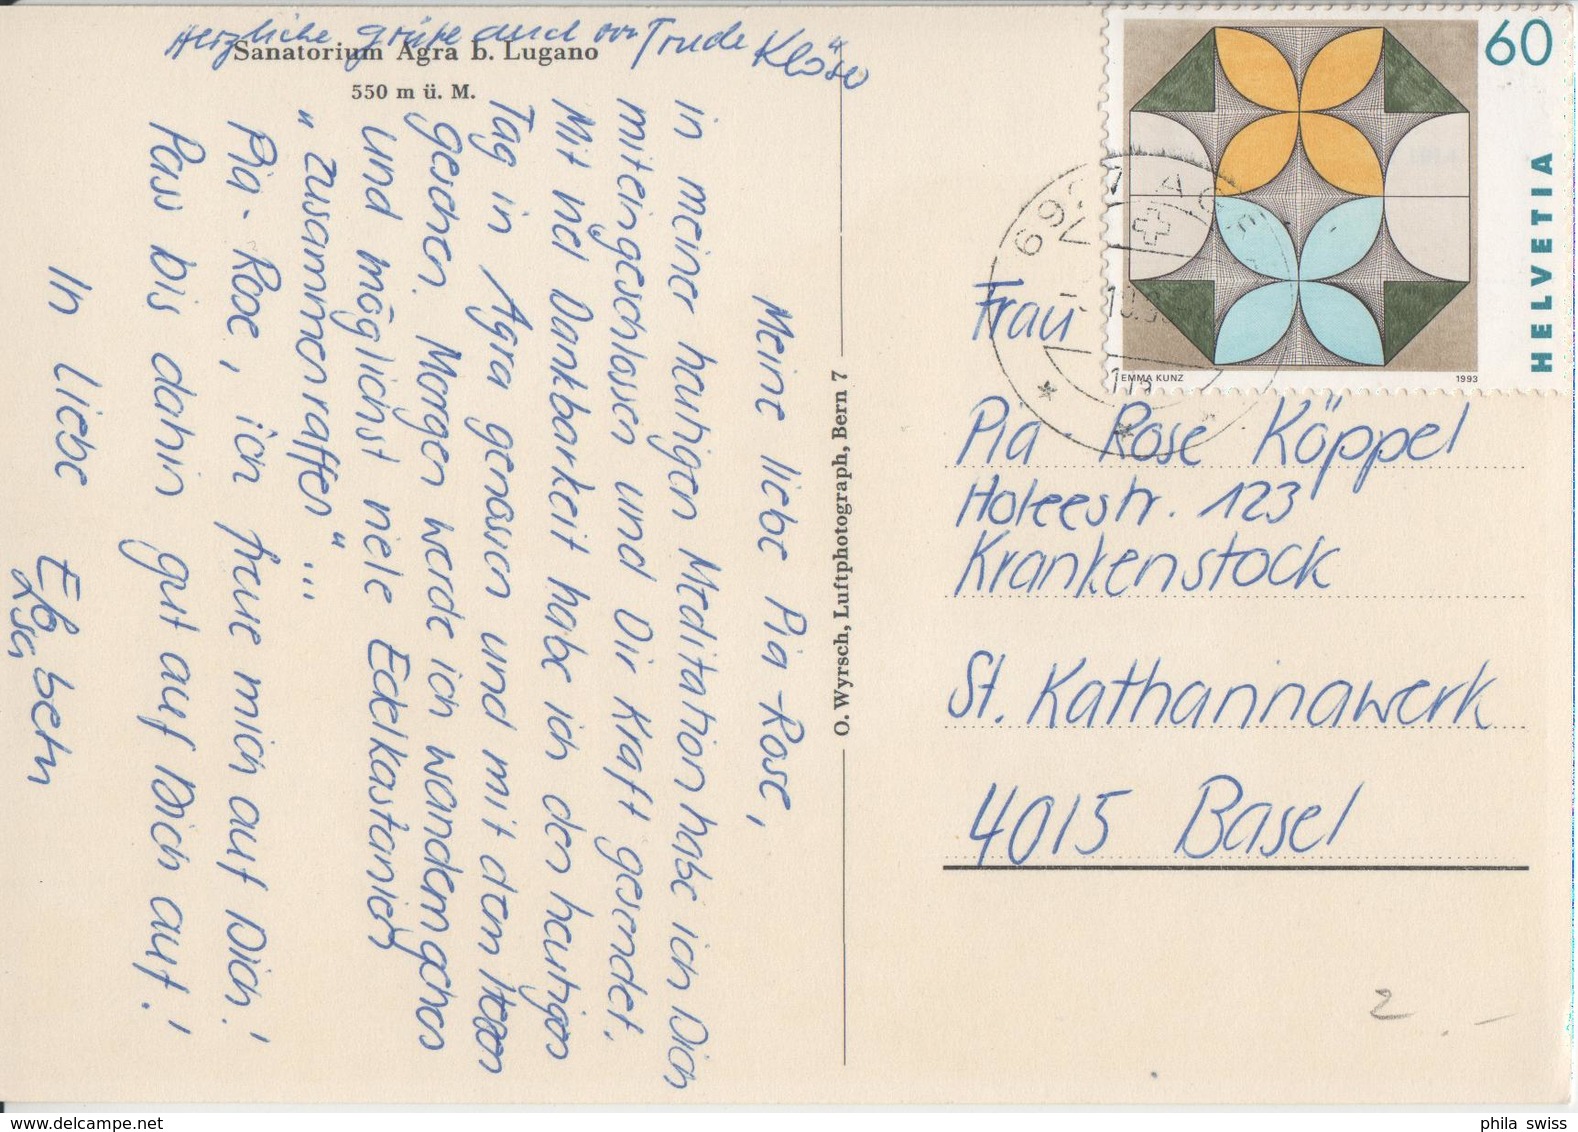 Herzliche grüße auch von Trude Kläse
Sanatorium Agra b. Lugano
550 m ü. M.
Meine liebe Pia-Rose,
In meiner heutigen Meditation habe ich Dich
miteingeschlossen und Dir Kraft gesendet.
Mit viel Dankbarkeit habe ich den heutigen
Tag in Agra genossen und mit dem
gesehen. Morgen werde ich wandern gehen
und möglichst viele Edelkastanien
"zusammenraffen" ...
Pia-Rose, ich freue mich auf Dich!
Pass bis dahin gut auf Dich auf!
In Liebe
O. Wyrsch, Luftphotograph, Bern 7
60
HELVETIA
EMMA KUNZ
1993
Frau
Pia-Rose Köppel
Holeestr. 123
Krankenstock
St. Katharinawerk
4015 Basel
2.-
phila swiss